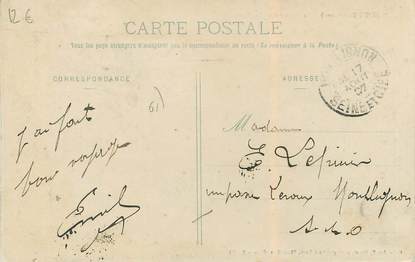 12 €
CARTE POSTALE
Tous les pays étrangers n'acceptent pas la correspondance au recto (Se renseigner à la Poste)
CORRESPONDANCE
ADRESSE
17
AOUT
07
SEINE-ET-OISE
61)
j'ai fait
bon voyage
Emile
Madame
E.
impasse Leroux Montlignon